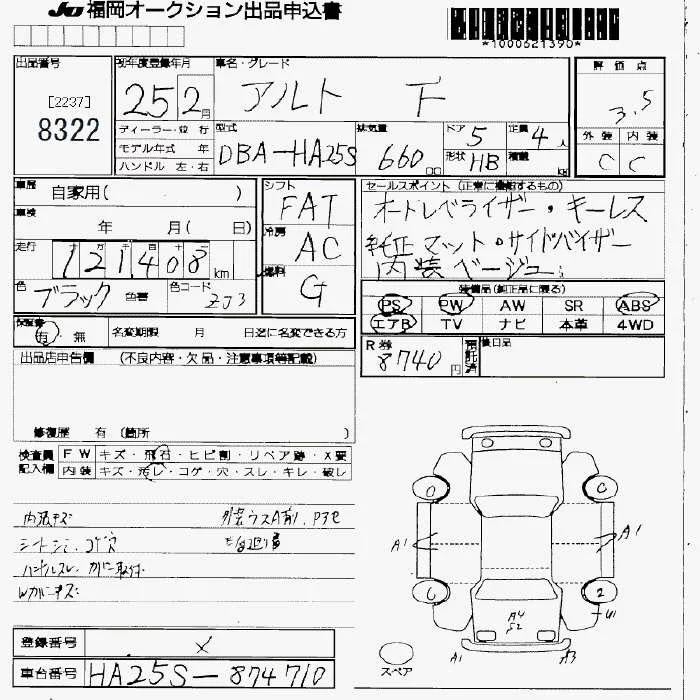 JU 福岡オークション出品申込書
*1000621390*
出品番号
[2237]
8322
初年度登録年月
25 2月
車名・グレード
アルト F
評価点
3.5
外装 内装
C C
ディーラー・並行
モデル年式 年
ハンドル 左・右
型式
DBA-HA25S
排気量
660 cc
ドア 5
形状 HB
定員 4人
積載 kg
車歴 自家用( )
車検 年 月( 日)
走行 十 万 千 百 十
121408 km
色 ブラック 色替 色コード ZJ3
シフト
FAT
冷房
AC
燃料
G
セールスポイント (正常に機能するもの)
オートレベライザー・キーレス
純正マット・サイドバイザー
内装ベージュ
装備品(純正品に限る)
PS PW AW SR ABS
エアB TV ナビ 本革 4WD
保証書
有・無 名変期限 月 日迄に名変できる方
R券
8740円
預託済
後日品
出品店申告欄 (不良内容・欠品・注意事項等記載)
修復歴 有 (箇所 )
検査員記入欄
FW キズ・飛石・ヒビ割・リペア跡・X要
内装 キズ・汚レ・コゲ・穴・スレ・キレ・破レ
内張キズ
シートシミ、コゲ穴
ハンドルスレ、
Wカバーキズ
C
A1 A1
2
U1
A4
S2
A1 A3
スペア
登録番号 メ
車台番号 HA25S-874710